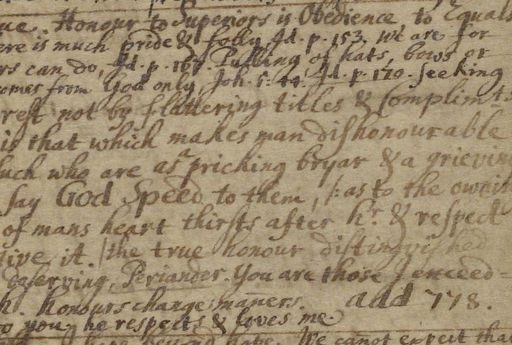 ue. Honour to Superiors is Obedience, to Equals
ere is much pride & folly Id. p. 153. we are for
rs can do, Id. p. 167. Pulling of hats, bows or
comes from God only Joh. 5: 44. Id. p. 170. seeking
rest not by flattering titles & Complimts
is that which makes man dishonourable
such who are as a pricking bryar & a grieving
say God Speed to them, as to the owning
of mans heart thirsts after hr. & respect
give it. the true honour distinguished
deserving. Periander. You are those I enceed-
h. honours change maners. add 778.
to you, he respects & loves me.
hope. We canot expect that